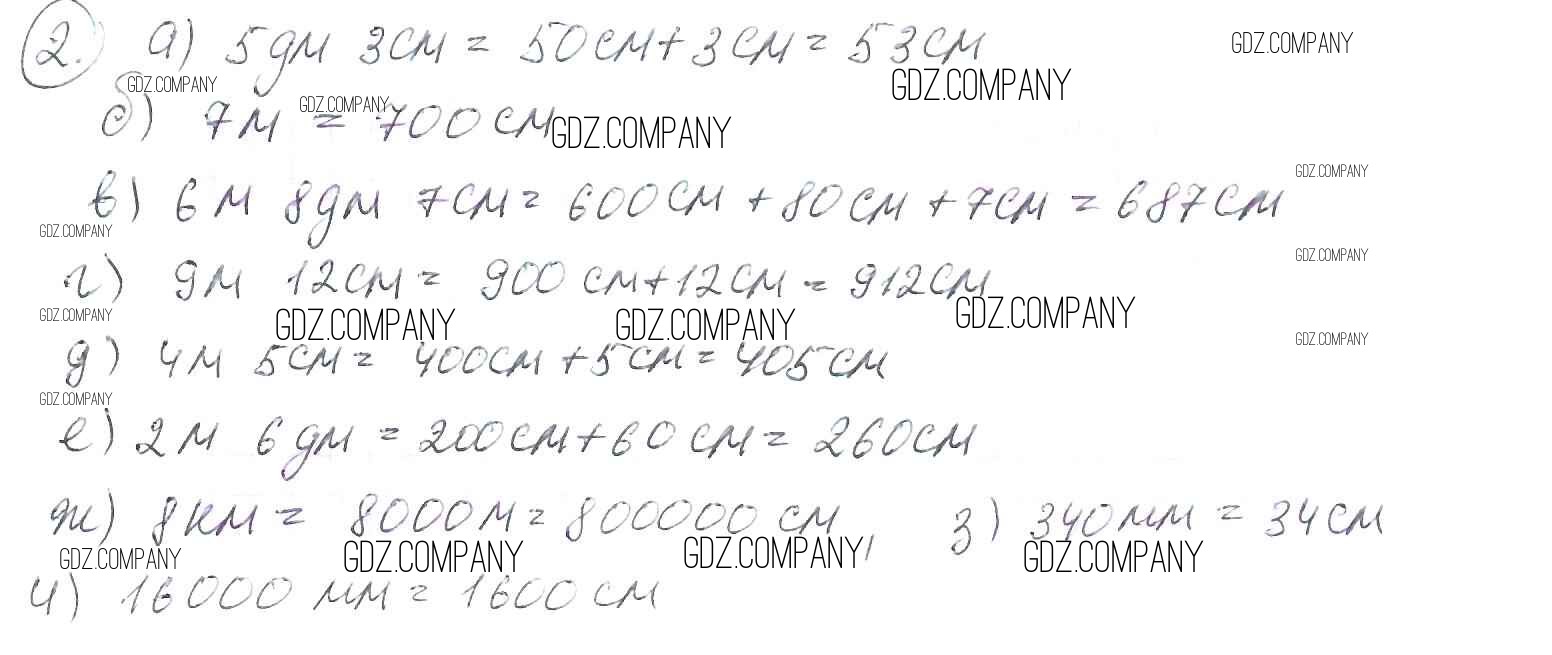 2. а) 5дм 3см = 50см + 3см = 53см
GDZ.COMPANY
GDZ.COMPANY
GDZ.COMPANY
GDZ.COMPANY
б) 7м = 700см
GDZ.COMPANY
GDZ.COMPANY
в) 6м 8дм 7см = 600см + 80см + 7см = 687см
GDZ.COMPANY
GDZ.COMPANY
г) 9м 12см = 900см + 12см = 912см
GDZ.COMPANY
GDZ.COMPANY
GDZ.COMPANY
GDZ.COMPANY
GDZ.COMPANY
д) 4м 5см = 400см + 5см = 405см
GDZ.COMPANY
е) 2м 6дм = 200см + 60см = 260см
ж) 8км = 8000м = 800000 см, з) 340мм = 34см
GDZ.COMPANY
GDZ.COMPANY
GDZ.COMPANY
GDZ.COMPANY
и) 16000 мм = 1600 см